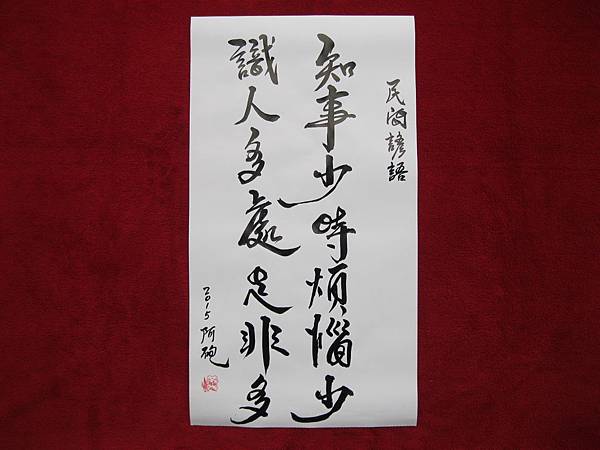 民間諺語
知事少時煩惱少
識人多處是非多
2015 阿砲